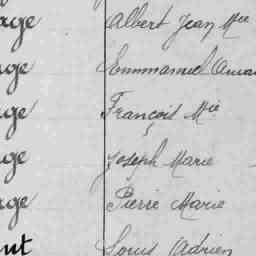 age Albert Jean Mie
age Emmmanuel
age François Mie
age Joseph Marie
age Pierre Marie
ent Louis Adrien